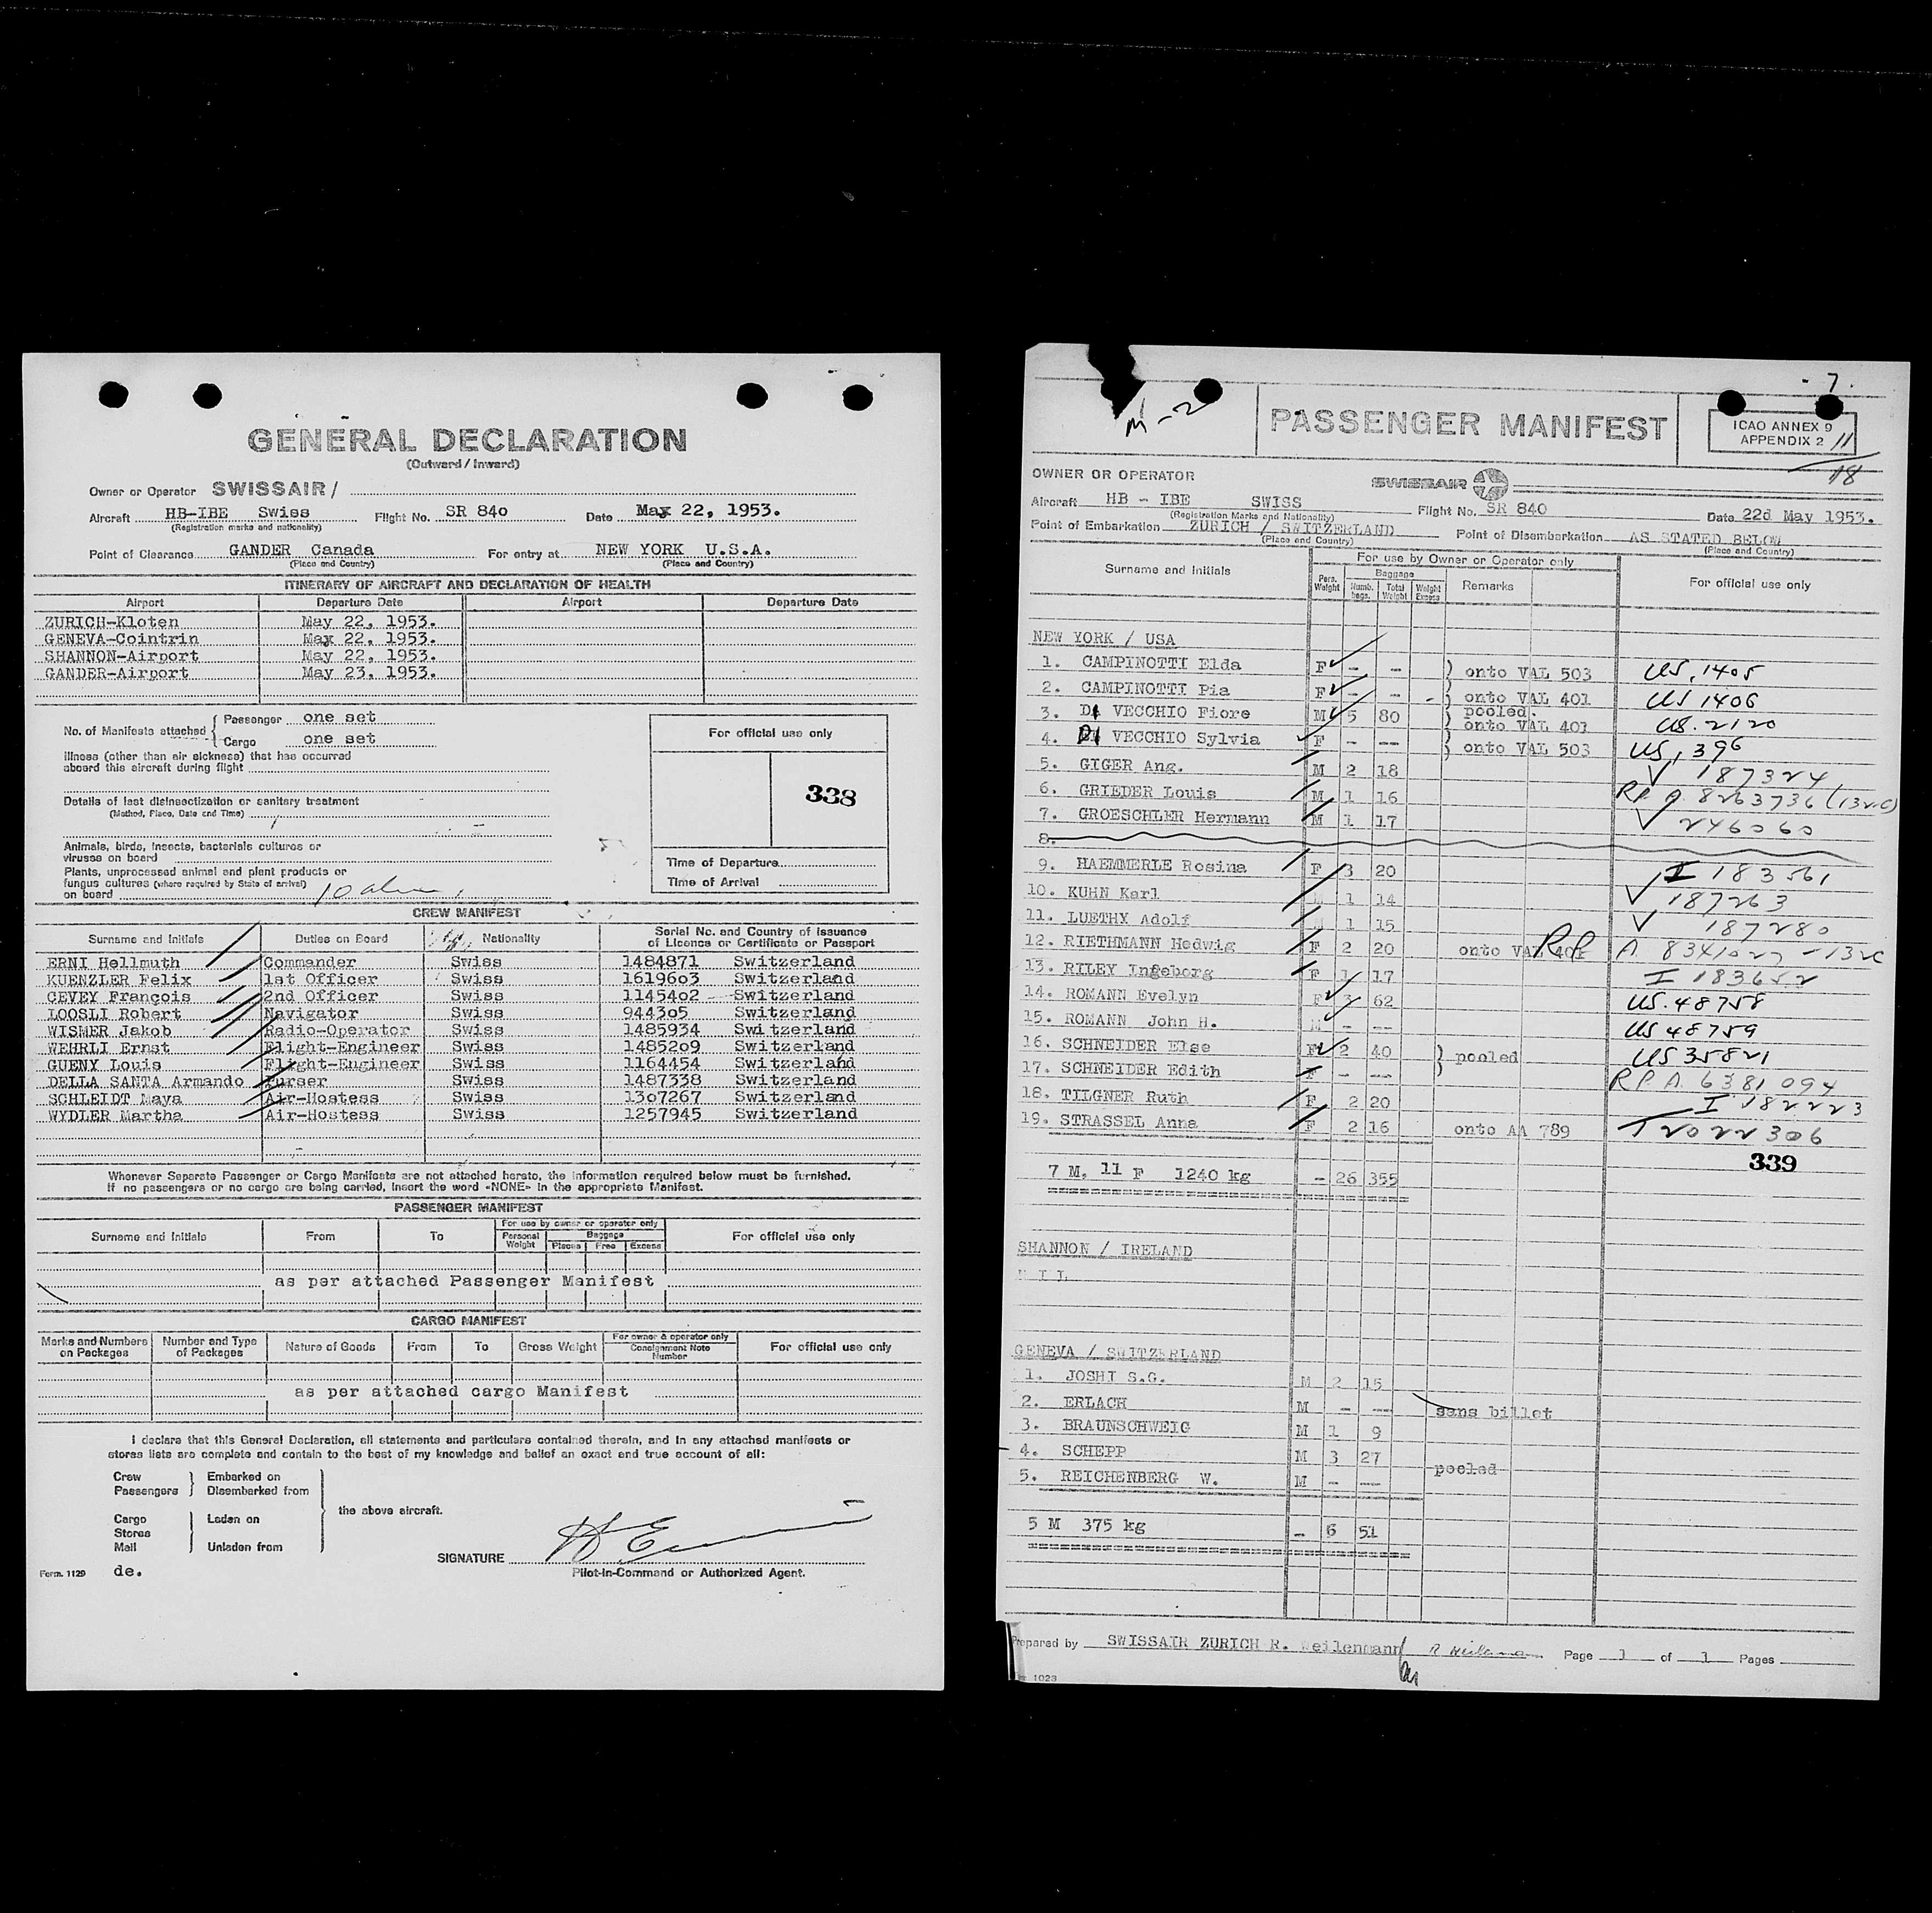 GENERAL DECLARATION
(Outward / Inward)
Owner or Operator SWISSAIR /
Aircraft HB-IBE Swiss Flight No. SR 840 Date May 22, 1953.
(Registration marks and nationality)
Point of Clearance GANDER Canada For entry at NEW YORK U.S.A.
(Place and Country) (Place and Country)
ITINERARY OF AIRCRAFT AND DECLARATION OF HEALTH
Airport Departure Date Airport Departure Date
ZURICH-Kloten May 22, 1953.
GENEVA-Cointrin May 22, 1953.
SHANNON-Airport May 22, 1953.
GANDER-Airport May 23, 1953.
No. of Manifests attached { Passenger one set
Cargo one set
Illness (other than air sickness) that has occurred
aboard this aircraft during flight
Details of last disinsectization or sanitary treatment
(Method, Place, Date and Time)
Animals, birds, insects, bacterials cultures or
viruses on board
Plants, unprocessed animal and plant products or
fungus cultures (where required by State of arrival)
on board
For official use only
338
Time of Departure
Time of Arrival
CREW MANIFEST
Surname and Initials Duties on Board Nationality Serial No. and Country of issuance
of Licence or Certificate or Passport
ERNI Hellmuth Commander Swiss 1484871 Switzerland
KUENZLER Felix 1st Officer Swiss 1619603 Switzerland
CEVEY François 2nd Officer Swiss 1145402 Switzerland
LOOSLI Robert Navigator Swiss 944305 Switzerland
WISMER Jakob Radio-Operator Swiss 1485934 Switzerland
WEHRLI Ernst Flight-Engineer Swiss 1485209 Switzerland
GUENY Louis Flight-Engineer Swiss 1164454 Switzerland
DELLA SANTA Armando Purser Swiss 1487338 Switzerland
SCHLEIDT Maya Air-Hostess Swiss 1307267 Switzerland
WYDLER Martha Air-Hostess Swiss 1257945 Switzerland
Whenever Separate Passenger or Cargo Manifests are not attached hereto, the information required below must be furnished.
If no passengers or no cargo are being carried, insert the word «NONE» in the appropriate Manifest.
PASSENGER MANIFEST
Surname and Initials From To For use by owner or operator only For official use only
Personal Weight Baggage
Pieces Free Excess
as per attached Passenger Manifest
CARGO MANIFEST
Marks and Numbers on Packages Number and Type of Packages Nature of Goods From To Gross Weight For owner & operator only Consignment Note Number For official use only
as per attached cargo Manifest
I declare that this General Declaration, all statements and particulars contained therein, and in any attached manifests or
stores lists are complete and contain to the best of my knowledge and belief an exact and true account of all:
Crew Embarked on
Passengers Disembarked from
the above aircraft.
Cargo Laden on
Stores
Mail Unladen from
SIGNATURE
Pilot-in-Command or Authorized Agent.
Form. 1129 de.
- 7.
M-2
PASSENGER MANIFEST
ICAO ANNEX 9
APPENDIX 2
11
18
OWNER OR OPERATOR SWISSAIR
Aircraft HB - IBE SWISS Flight No. SR 840 Date 22d May 1953.
(Registration Marks and Nationality)
Point of Embarkation ZURICH / SWITZERLAND Point of Disembarkation AS STATED BELOW
(Place and Country) (Place and Country)
Surname and Initials For use by Owner or Operator only For official use only
Pers. Weight Baggage Remarks
Numb. bags. Total Weight Weight Excess
NEW YORK / USA
1. CAMPINOTTI Elda F - - onto VAL 503 US, 1405
2. CAMPINOTTI Pia F - - - onto VAL 401 US 1406
3. DI VECCHIO Fiore M 5 80 pooled. onto VAL 401 US. 2120
4. DI VECCHIO Sylvia F - -- onto VAL 503 US, 396
5. GIGER Ang. M 2 18 187324
6. GRIEDER Louis M 1 16 R.P. A. 8263736 (132C)
7. GROESCHLER Hermann M 1 17 246060
8.
9. HAEMMERLE Rosina F 3 20 I 183561
10. KUHN Karl 1 14 187263
11. LUETHY Adolf M 1 15 187280
12. RIETHMANN Hedwig F 2 20 onto VAL 401 RP A 8341027 - 132C
13. RILEY Ingeborg F 1 17 I 183652
14. ROMANN Evelyn F 3 62 US. 48758
15. ROMANN John H. M - -- US 48759
16. SCHNEIDER Else F 2 40 } pooled US 35821
17. SCHNEIDER Edith F - -- R.P. A. 6381094
18. TILGNER Ruth F 2 20 I 182223
19. STRASSEL Anna F 2 16 onto AA 789 T 2022306
339
7 M, 11 F 1240 kg - 26 355
SHANNON / IRELAND
N I L
GENEVA / SWITZERLAND
1. JOSHI S.G. M 2 15
2. ERLACH M - -- sans billet
3. BRAUNSCHWEIG M 1 9
4. SCHEPP M 3 27 pooled
5. REICHENBERG W. M - --
5 M 375 kg - 6 51
Prepared by SWISSAIR ZURICH R. Weilenmann Page 1 of 1 Pages
1023